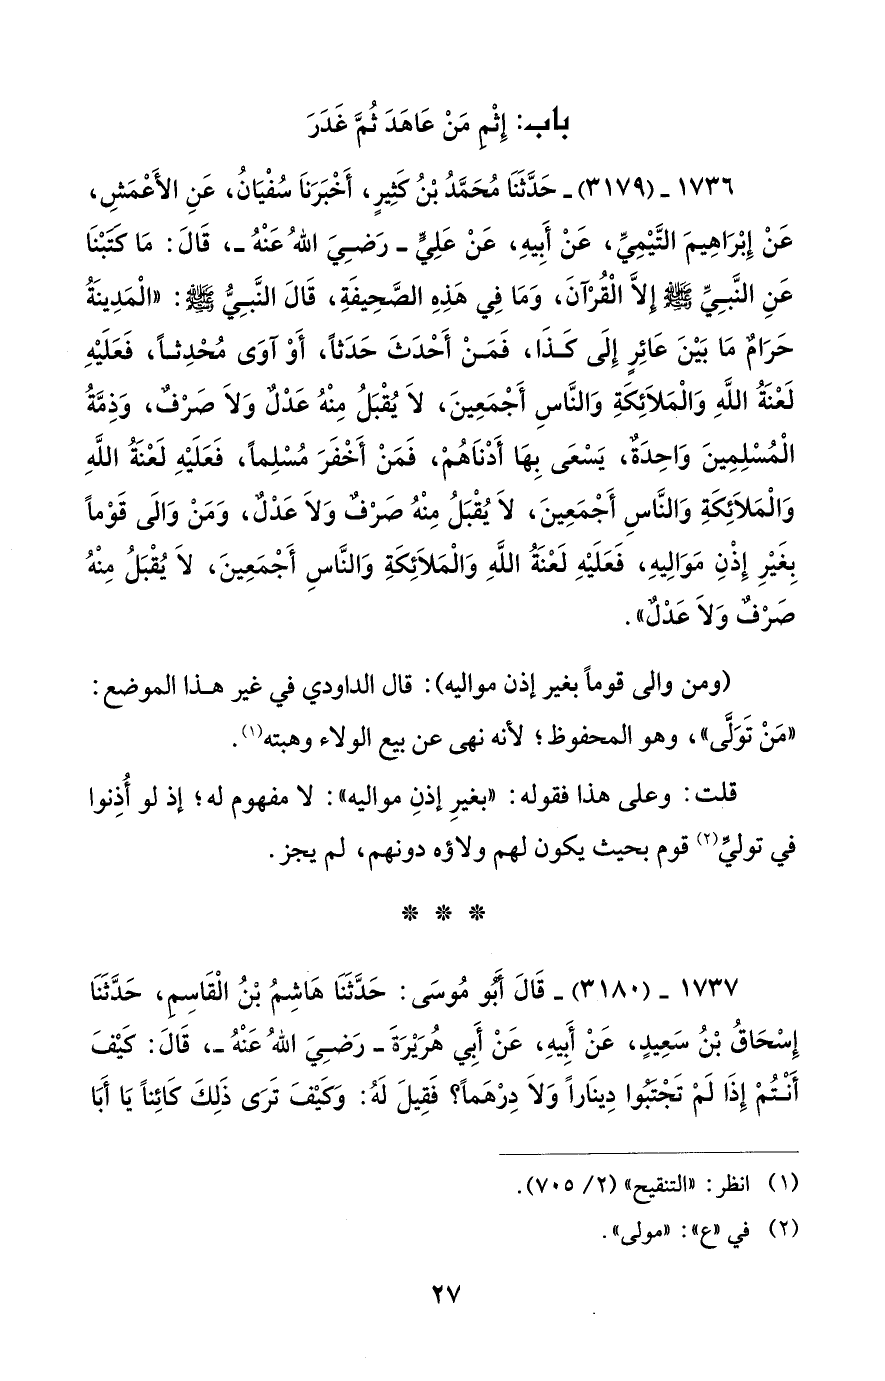 باب: إِثْمِ مَنْ عَاهَدَ ثُمَّ غَدَرَ
١٧٣٦ ـ (٣١٧٩) ـ حَدَّثَنَا مُحَمَّدُ بْنُ كَثِيرٍ، أَخْبَرَنَا سُفْيَانُ، عَنِ الأَعْمَشِ،
عَنْ إِبْرَاهِيمَ التَّيْمِيِّ، عَنْ أَبِيهِ، عَنْ عَلِيٍّ ـ رَضِيَ اللهُ عَنْهُ ـ، قَالَ: مَا كَتَبْنَا
عَنِ النَّبِيِّ ﷺ إِلاَّ الْقُرْآنَ، وَمَا فِي هَذِهِ الصَّحِيفَةِ، قَالَ النَّبِيُّ ﷺ: «الْمَدِينَةُ
حَرَامٌ مَا بَيْنَ عَائِرٍ إِلَى كَذَا، فَمَنْ أَحْدَثَ حَدَثاً، أَوْ آوَى مُحْدِثاً، فَعَلَيْهِ
لَعْنَةُ اللَّهِ وَالْمَلاَئِكَةِ وَالنَّاسِ أَجْمَعِينَ، لاَ يُقْبَلُ مِنْهُ عَدْلٌ وَلاَ صَرْفٌ، وَذِمَّةُ
الْمُسْلِمِينَ وَاحِدَةٌ، يَسْعَى بِهَا أَدْنَاهُمْ، فَمَنْ أَخْفَرَ مُسْلِماً، فَعَلَيْهِ لَعْنَةُ اللَّهِ
وَالْمَلاَئِكَةِ وَالنَّاسِ أَجْمَعِينَ، لاَ يُقْبَلُ مِنْهُ صَرْفٌ وَلاَ عَدْلٌ، وَمَنْ وَالَى قَوْماً
بِغَيْرِ إِذْنِ مَوَالِيهِ، فَعَلَيْهِ لَعْنَةُ اللَّهِ وَالْمَلاَئِكَةِ وَالنَّاسِ أَجْمَعِينَ، لاَ يُقْبَلُ مِنْهُ
صَرْفٌ وَلاَ عَدْلٌ».
(ومن والى قوماً بغير إذن مواليه): قال الداودي في غير هذا الموضع:
«مَنْ تَوَلَّى»، وهو المحفوظ؛ لأنه نهى عن بيع الولاء وهبته(١).
قلت: وعلى هذا فقوله: «بغيرِ إذنِ مواليه»: لا مفهوم له؛ إذ لو أُذِنوا
في توليِّ(٢) قوم بحيث يكون لهم ولاؤه دونهم، لم يجز.
* * *
١٧٣٧ ـ (٣١٨٠) ـ قَالَ أَبُو مُوسَى: حَدَّثَنَا هَاشِمُ بْنُ الْقَاسِمِ، حَدَّثَنَا
إِسْحَاقُ بْنُ سَعِيدٍ، عَنْ أَبِيهِ، عَنْ أَبِي هُرَيْرَةَ ـ رَضِيَ اللهُ عَنْهُ ـ، قَالَ: كَيْفَ
أَنْتُمْ إِذَا لَمْ تَجْتَبُوا دِينَاراً وَلاَ دِرْهَماً؟ فَقِيلَ لَهُ: وَكَيْفَ تَرَى ذَلِكَ كَائِناً يَا أَبَا
(١) انظر: «التنقيح» (٢/ ٧٠٥).
(٢) في «ع»: «مولى».
٢٧